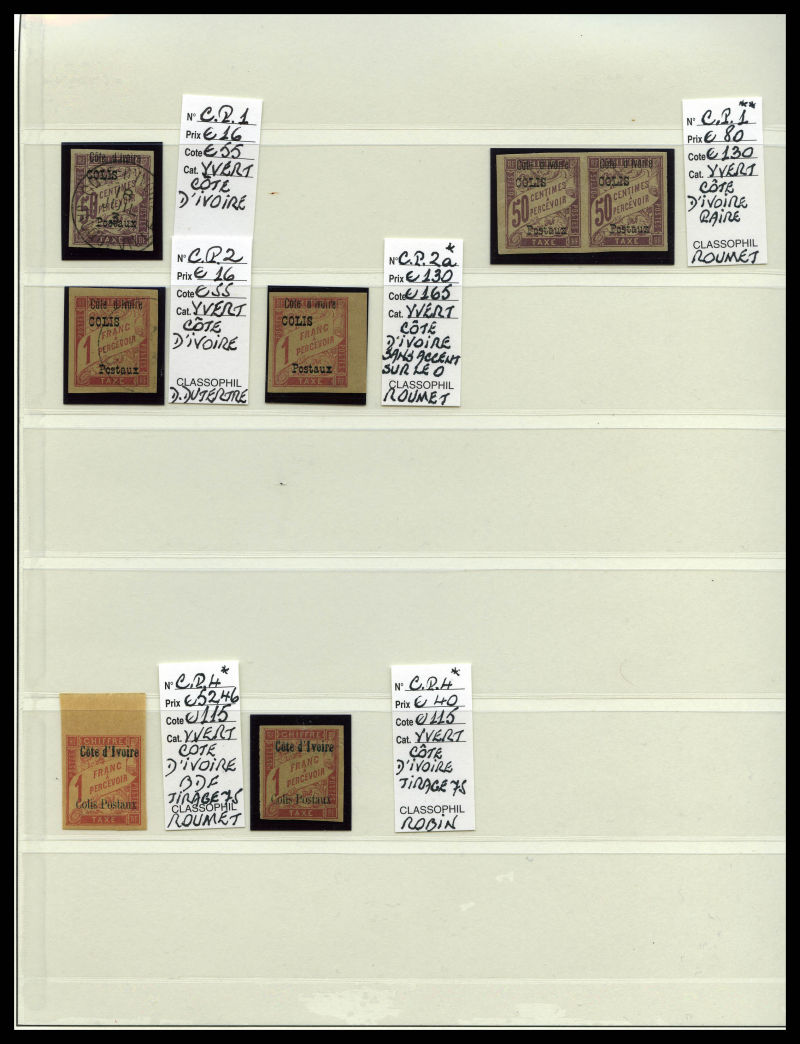 N° C.P.1
Prix € 16
Cote € 55
Cat. YVERT
CÔTE
D'IVOIRE
N° C.P.1 **
Prix € 80
Cote € 130
Cat. YVERT
CÔTE
D'IVOIRE
PAIRE
CLASSOPHIL
ROUMET
Côte d'Ivoire
COLIS
50
Postaux
Côte d'Ivoire
COLIS
50 CENTIMES
À PERCEVOIR
Postaux
TAXE
Côte d'Ivoire
COLIS
50 CENTIMES
À PERCEVOIR
Postaux
TAXE
N° C.P.2
Prix € 16
Cote € 55
Cat. YVERT
CÔTE
D'IVOIRE
CLASSOPHIL
D.DUTERTRE
N° C.P.2a *
Prix € 130
Cote € 165
Cat. YVERT
CÔTE
D'IVOIRE
SANS ACCENT
SUR LE O
CLASSOPHIL
ROUMET
Côte d'Ivoire
COLIS
1 FRANC
À PERCEVOIR
Postaux
TAXE
Cote d'Ivoire
COLIS
1 FRANC
À PERCEVOIR
Postaux
TAXE
N° C.P.4 *
Prix € 52.46
Cote € 115
Cat. YVERT
CÔTE
D'IVOIRE
BDF
TIRAGE 75
CLASSOPHIL
ROUMET
N° C.P.4 *
Prix € 40
Cote € 115
Cat. YVERT
CÔTE
D'IVOIRE
TIRAGE 75
CLASSOPHIL
ROBIN
CHIFFRE
Côte d'Ivoire
1 FRANC
À PERCEVOIR
Colis Postaux
TAXE
CHIFFRE
Côte d'Ivoire
1 FRANC
À PERCEVOIR
Colis Postaux
TAXE